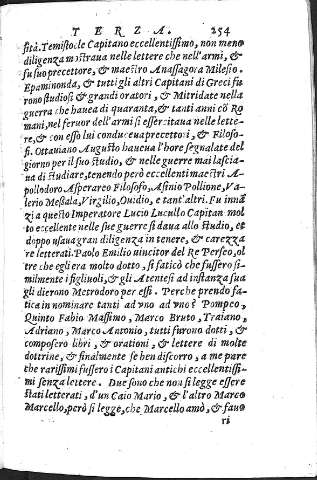 TERZA. 254
sità. Temistocle Capitano eccellentissimo, non meno
diligenza mostraua nelle lettere che nell'armi, &
fu suo precettore, & maestro Anassagora Milesio.
Epaminonda, & tutti gli altri Capitani di Greci fu
rono studiosi & grandi oratori, & Mitridate nella
guerra che haueua di quaranta, & tanti anni cō Ro
mani, nel feruor dell'armi si essercitaua nelle lette-
re, & con esso lui conduceua precettori, & Filoso-
fi. Ottauiano Augusto haueua l'hore segnalate del
giorno per il suo studio, & nelle guerre mai lascia-
ua di studiare, tenendo però eccellenti maestri A-
pollodoro Asperareo Filosofo, Asinio Pollione, Va-
lerio Messala, Virgilio, Ouidio, e tant'altri. Fu innā
zi a questo Imperatore Lucio Lucullo Capitan mol
to eccellente nelle sue guerre si daua allo studio, et
doppo usaua gran diligenza in tenere, & carezza
re letterati. Paolo Emilio uincitor del Re Perseo, ol
tre che egli era molto dotto, si faticò che fussero si-
milmente i figliuoli, & gli Atenesi ad instanza sua
gli dierono Metrodoro per essi. Perche prendo fa-
tica in nominare tanti ad uno ad uno è Pompeo,
Quinto Fabio Massimo, Marco Bruto, Traiano,
Adriano, Marco Antonio, tutti furono dotti, &
composero libri, & orationi, & lettere di molte
dottrine, & finalmente se ben discorro, a me pare
che rarissimi fussero i Capitani antichi eccellentissi-
mi senza lettere. Due sono che non si legge essere
stati letterati, d'un Caio Mario, & l'altro Marco
Marcello, però si legge, che Marcello amò, & fauo
ri